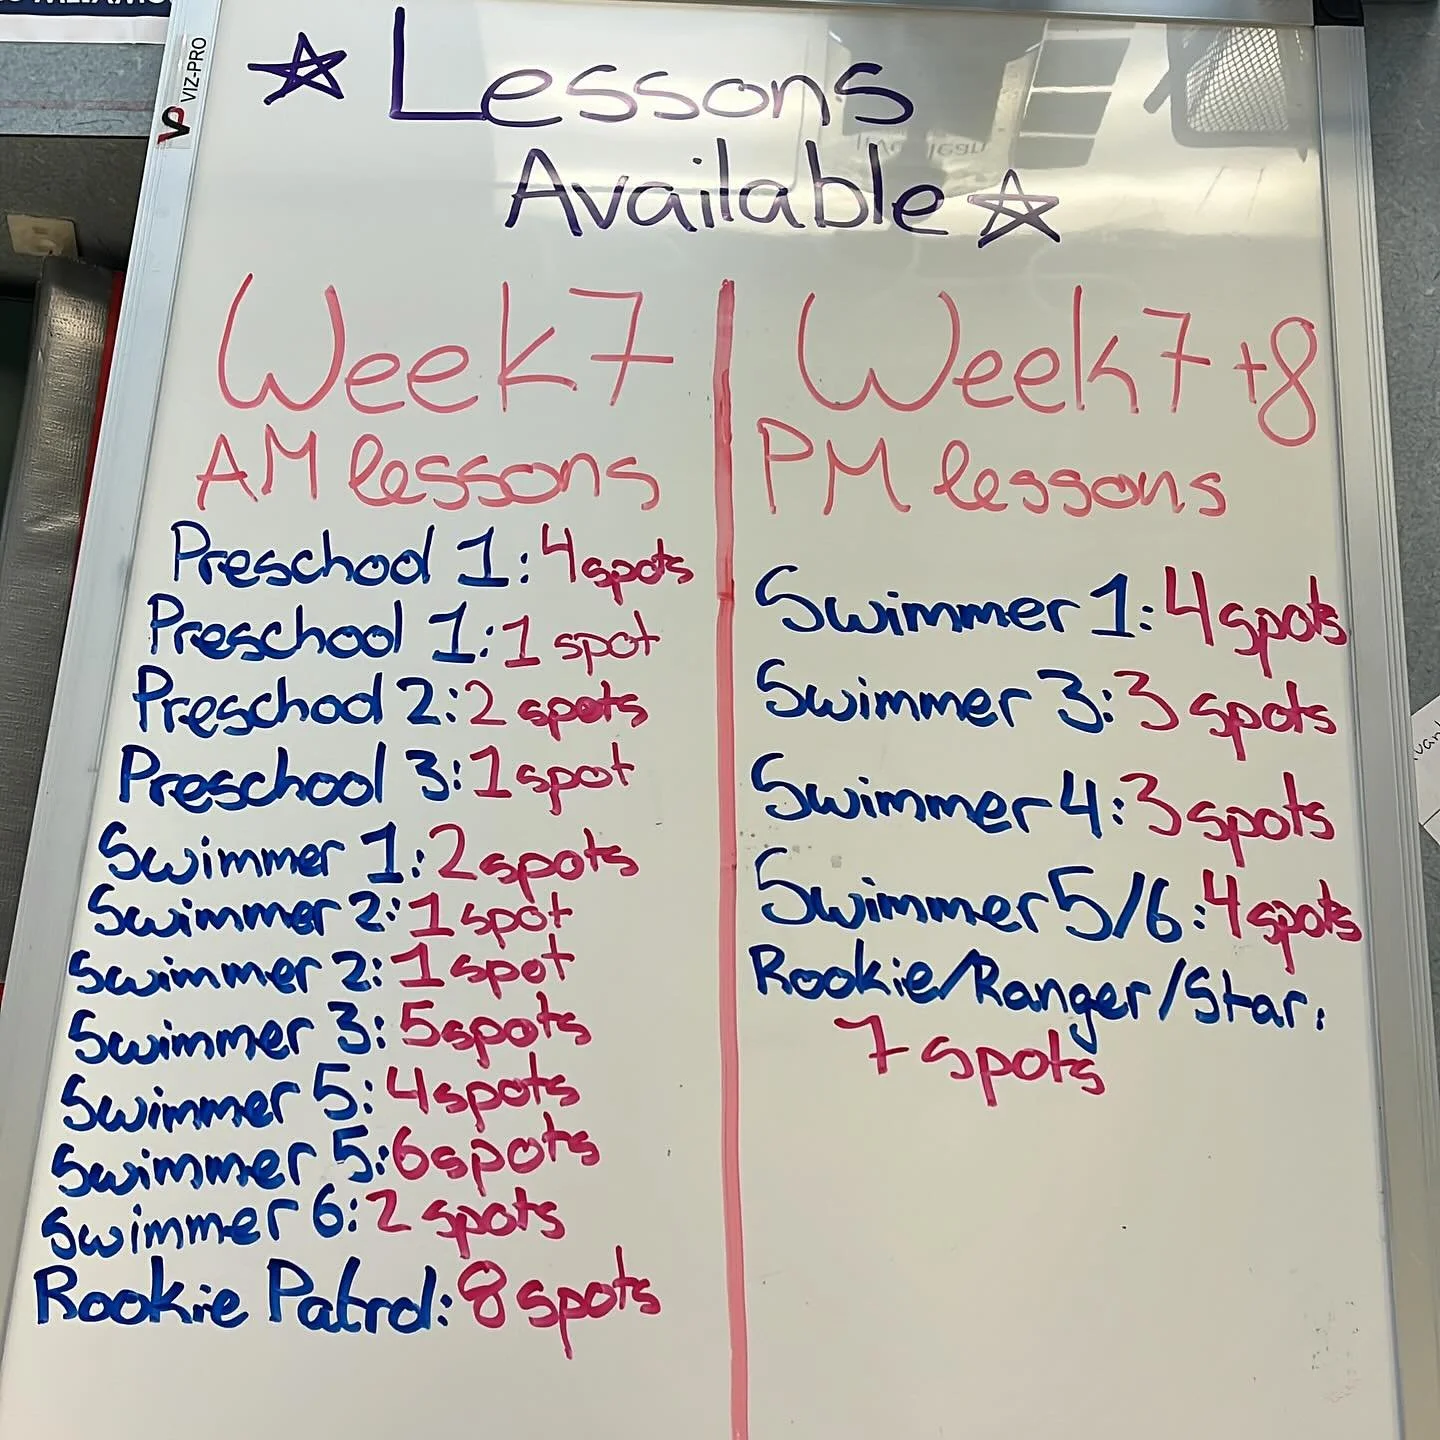 VIZ-PRO
☆ Lessons
Available ☆
Week 7
AM lessons
Preschool 1: 4 spots
Preschool 1: 1 spot
Preschool 2: 2 spots
Preschool 3: 1 spot
Swimmer 1: 2 spots
Swimmer 2: 1 spot
Swimmer 2: 1 spot
Swimmer 3: 5 spots
Swimmer 5: 4 spots
Swimmer 5: 6 spots
Swimmer 6: 2 spots
Rookie Patrol: 8 spots
Week 7 + 8
PM lessons
Swimmer 1: 4 spots
Swimmer 3: 3 spots
Swimmer 4: 3 spots
Swimmer 5/6: 4 spots
Rookie/Ranger/Star:
7 spots